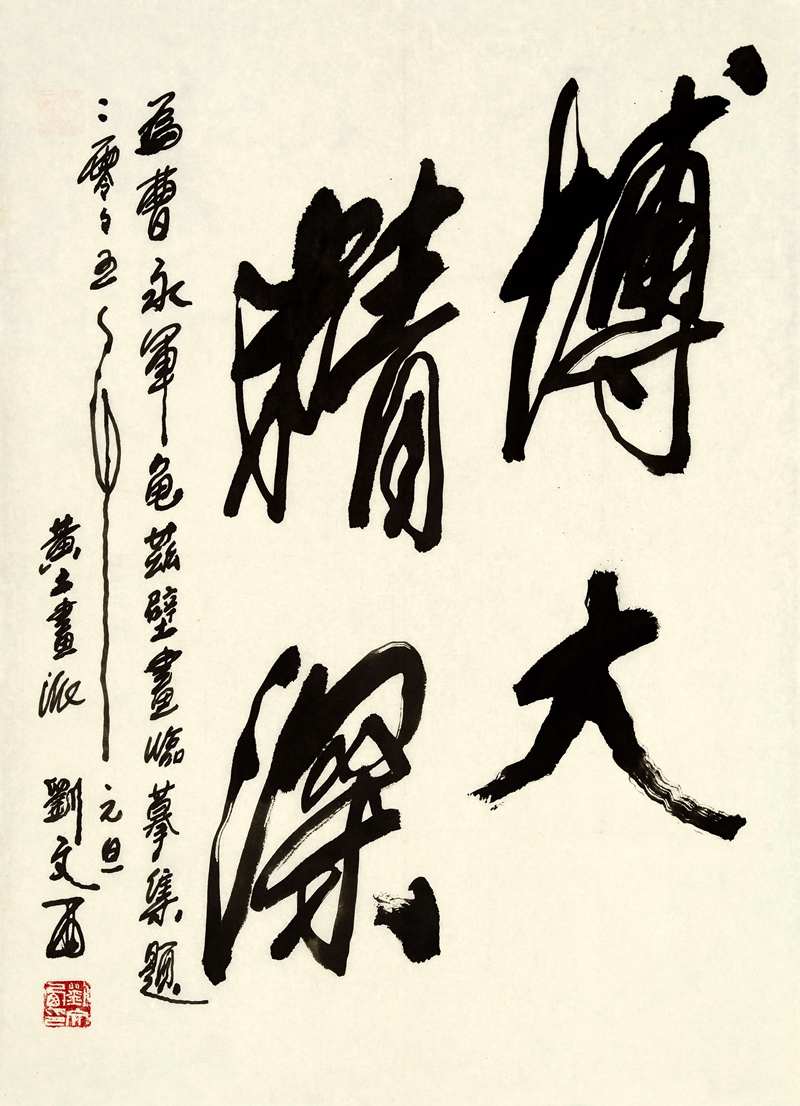 博大
精深
為曹永軍龟茲壁畫臨摹集題
二零々五年元旦
黃土畫派 劉文西